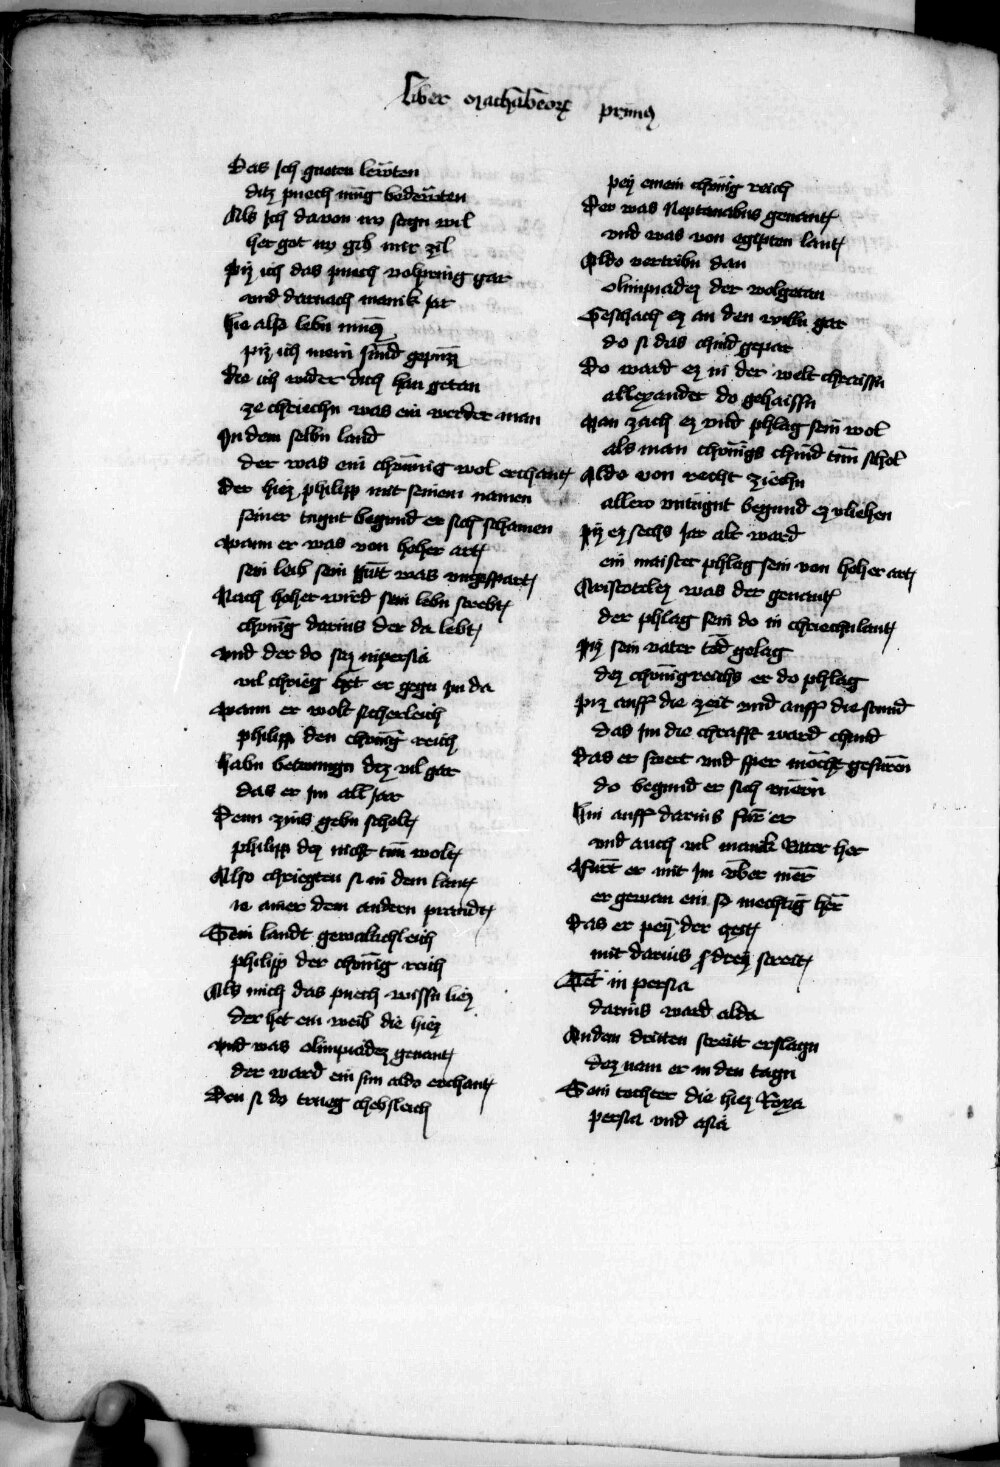 Liber Machabeorum primus
Das Ich gueten lewten
ditz puech mug bedewten
Als Ich davon nv sagn wil
her got nv gib mir zil
Piz ich das puech volpring gar
vnd darnach manik jar
hie also lebn
piz ich mein sund
die ich wider dich han getan
ze chriechn was ein werder man
In dem selbn land
der was ein chunig wol erchant
der hiez philipp mit seinem namen
seiner tugnt begund er sich schamen
wann er was von hoher art
sein leib sein gutt was vngespart
Nach hoher wird sein lebn strebt
chonig darius der da lebt
vnd der do saz in persia
vil chrieg het er gegn jm da
wann er wolt sicherleich
philipp den chonig reich
habn betwungn dez vil gar
das er jm all jar
Denn zins gebn scholt
philipp dez nicht tun wolt
Also chriegten si in dem lant
ie ainer dem andern prandt
Sein landt gewaltichleich
philipp der chonig reich
Als mich das puech wissn liez
der het ein weib die hiez
vnd was olimpiadez genant
der ward ein sun aldo erchant
Den si do trueg chebsleich
pey einem chonig reich
Der was Neptanabus genant
vnd was von egipten lant
Aldo vertribn dan
olimpiadez der wolgetan
Geschach ez an den willn gar
do si das chind gepar
Do ward ez in der welt chraissn
allexander do gehaissn
Man zach ez vnd phlag sein wol
als man chonigs chind tun schol
Aldo von recht ziechn
aller vntugnt begund ez vliehen
Piz ez sechs Jar alt ward
ein maister phlag sein von hoher art
Aristotelez was der genant
der phlag sein do in chriechnlant
Piz sein vater tod gelag
dez chonigreichs er do phlag
piz auff die zeit vnd auff die stund
das jm die chrafft ward chund
Das er swert vnd sper mocht gefuren
do begund er sich ruern
Hin auff darius fur er
vnd auch vil manck Ritter her
Furt er mit jm vber mer
er gewan ein so mechtig her
Das er pey der zeit
mit darius drey streit
Tet in persia
darius ward alda
An dem dritten streitt erslagn
dez nam er in den tagn
Sein tochter die hiez Roxa
persia vnd asia